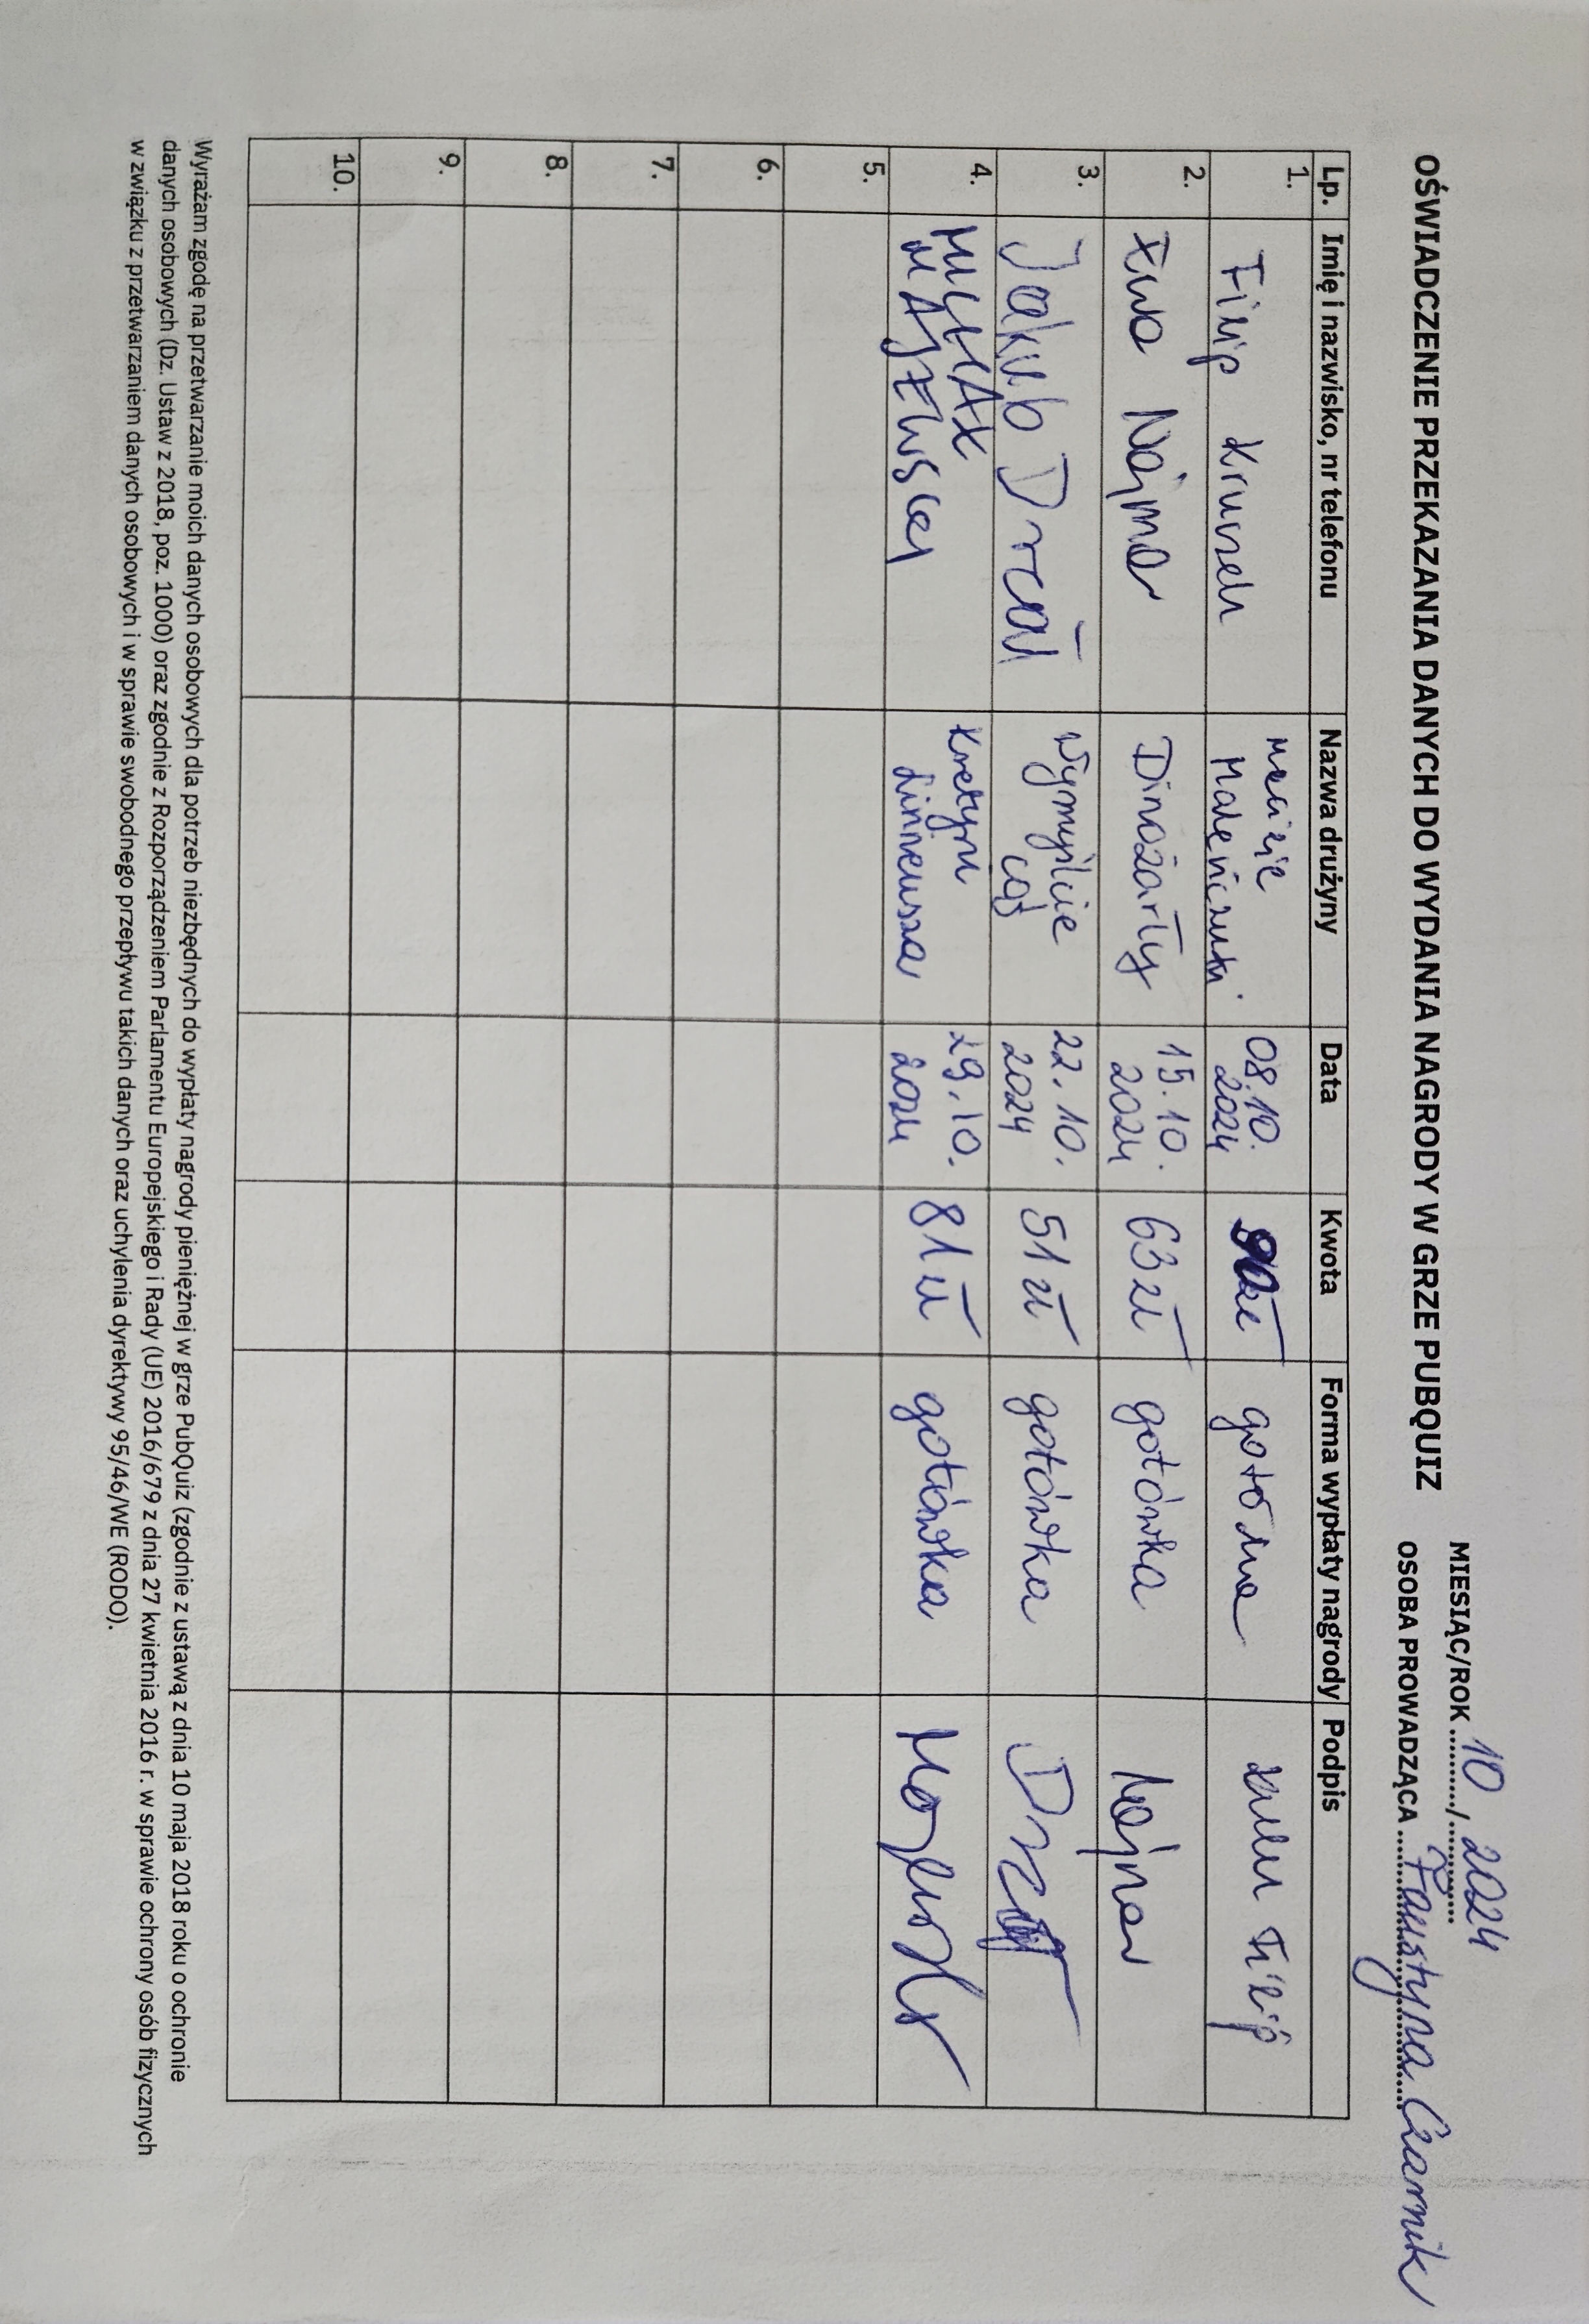 MIESIĄC/ROK ........../........... 10, 2024
OŚWIADCZENIE PRZEKAZANIA DANYCH DO WYDANIA NAGRODY W GRZE PUBQUIZ
OSOBA PROWADZĄCA .......... Faustyna Czarnik
Lp. Imię i nazwisko, nr telefonu Nazwa drużyny Data Kwota Forma wypłaty nagrody Podpis
1. Filip 08.10. 2024 Filip
2. Ewa Najmar Dinożarły 15.10. 2024 63 zł gotówka Najmar
3. Jakub Wymyślcie coś 22.10. 2024 51 zł gotówka
4. Kretyni Linneusza 29.10. 2024 81 zł gotówka
5.
6.
7.
8.
9.
10.
Wyrażam zgodę na przetwarzanie moich danych osobowych dla potrzeb niezbędnych do wypłaty nagrody pieniężnej w grze PubQuiz (zgodnie z ustawą z dnia 10 maja 2018 roku o ochronie
danych osobowych (Dz. Ustaw z 2018, poz. 1000) oraz zgodnie z Rozporządzeniem Parlamentu Europejskiego i Rady (UE) 2016/679 z dnia 27 kwietnia 2016 r. w sprawie ochrony osób fizycznych
w związku z przetwarzaniem danych osobowych i w sprawie swobodnego przepływu takich danych oraz uchylenia dyrektywy 95/46/WE (RODO).